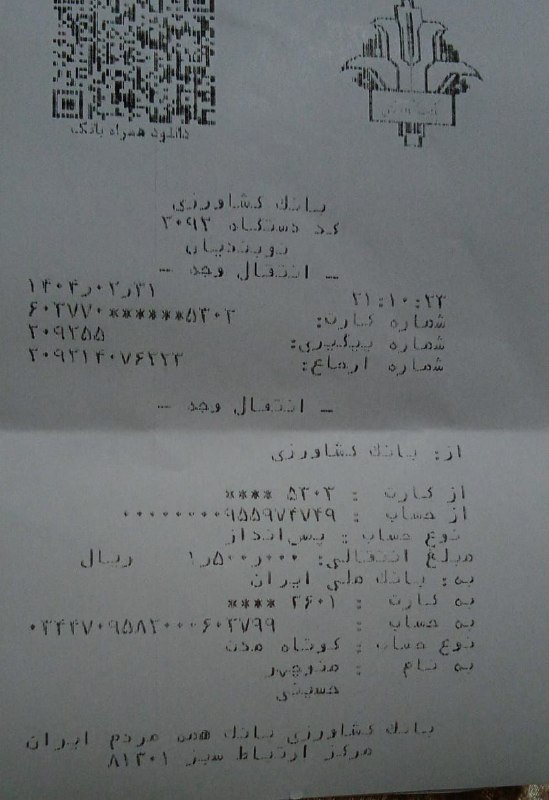 دانلود همراه بانک
بانک کشاورزی
کد دستگاه ۳۰۹۳
نوبندیان
- انتقال وجه -
۲۱:۱۰:۲۲ ۱۴۰۴ر۰۲ر۳۱
شماره کارت: ۶۰۳۷۷۰******۵۳۰۳
شماره پیگیری: ۲۰۹۲۵۵
شماره ارجاع: ۲۰۹۲۱۴۰۷۶۲۲۳
- انتقال وجه -
از: بانک کشاورزی
از کارت : ۵۳۰۳ ****
از حساب : ۹۵۵۹۷۴۷۴۹۰۰۰۰۰۰۰۰۰
نوع حساب : پس‌انداز
مبلغ انتقالی: ۱ر۵۰۰ر۰۰۰ ریال
به: بانک ملی ایران
به کارت : ۲۶۰۱ ****
به حساب :
نوع حساب : کوتاه مدت
به نام : منوچهر
حسینی
بانک کشاورزی بانک همه مردم ایران
مرکز ارتباط سبز ۸۱۳۰۱